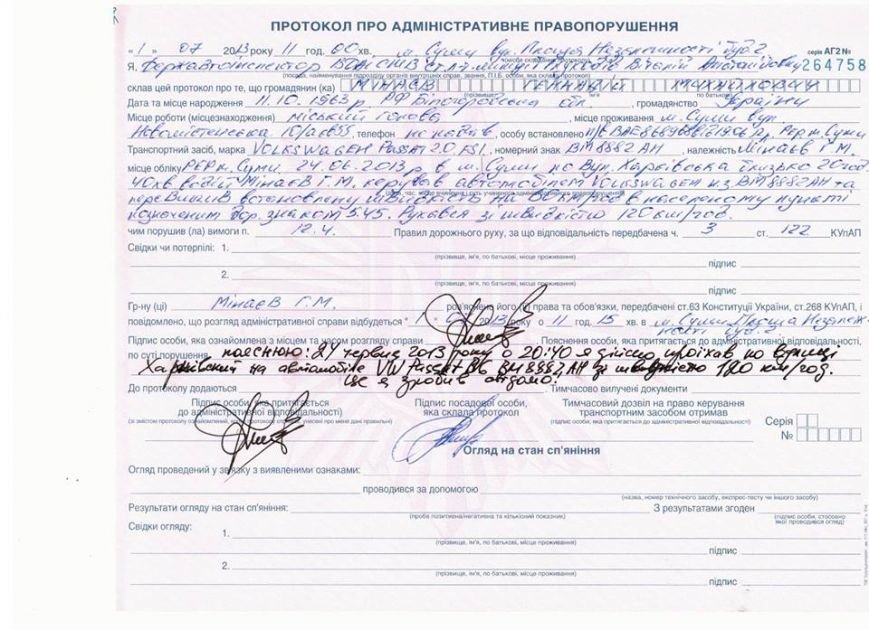 ПРОТОКОЛ ПРО АДМІНІСТРАТИВНЕ ПРАВОПОРУШЕННЯ
«1» 07 2013 року 11 год. 00 хв. м. Суми вул. Площа Незалежності буд. 2 серія АГ2 №
Я, Державтоінспектор ст. л-т міліції Віталій 264758
(посада, найменування підрозділу органів внутрішніх справ, звання, П.І.Б. особи, яка склала протокол)
склав цей протокол про те, що громадянин (ка) МІНАЄВ ГЕННАДІЙ МИХАЙЛОВИЧ
(прізвище, ім'я, по батькові)
Дата та місце народження 11.10.1963 р. РФ обл. , громадянство України
Місце роботи (місцезнаходження) міський голова , місце проживання м. Суми вул.
10/а кв 55, телефон , особу встановлено п/в
Транспортний засіб, марка VOLKSWAGEN Passat 2.0 FSI, номерний знак ВМ8882АН , належність Мінаєв Г.М.
місце обліку РЕР м. Суми. 24.06.2013 р. в м. Суми по вул. Харківська близько 20 год
40 хв водій Мінаєв Г.М. керував автомобілем VOLKSWAGEN нз ВМ8882АН та
перевищив встановлену швидкість на 60 км/год в населеному пункті
позначеним дор. знаком 5.45. Рухався зі швидкістю 120 км/год.
чим порушив (ла) вимоги п. 12.4. Правил дорожнього руху, за що відповідальність передбачена ч. 3 ст. 122 КУпАП
Свідки чи потерпілі: 1.
(прізвище, ім'я, по батькові, місце проживання)
підпис
2.
(прізвище, ім'я, по батькові, місце проживання)
підпис
Гр-ну (ці) Мінаєв Г.М. роз'яснено його (її) права та обов'язки, передбачені ст.63 Конституції України, ст.268 КУпАП, і
повідомлено, що розгляд адміністративної справи відбудеться 2013 о 11 год. 15 хв. в м. Суми Площа
Підпис особи, яка ознайомлена з місцем та часом розгляду справи Пояснення особи, яка притягається до адміністративної відповідальності,
по суті порушення пояснюю: 24 червня 2013 року о 20:40 я дійсно проїхав по вулиці
на автомобілі VW Passat B6 ВМ8882АН зі швидкістю 120 км/год.
Це я зробив
До протоколу додаються Тимчасово вилучені документи
Підпис особи, яка притягається до адміністративної відповідальності)
Підпис посадової особи, яка склала протокол
Тимчасовий дозвіл на право керування транспортним засобом отримав
(підпис особи, яка притягається до адміністративної відповідальності)
Серія
№
Огляд на стан сп'яніння
Огляд проведений у зв'язку з виявленими ознаками:
проводився за допомогою
(назва, номер технічного засобу, експрес-тесту чи іншого засобу)
Результати огляду на стан сп'яніння: З результатами згоден
(проба позитивна/негативна та кількісний показник)
(підпис особи, стосовно якої проводився огляд)
Свідки огляду: 1.
(прізвище, ім'я, по батькові, місце проживання)
підпис
2.
(прізвище, ім'я, по батькові, місце проживання)
підпис